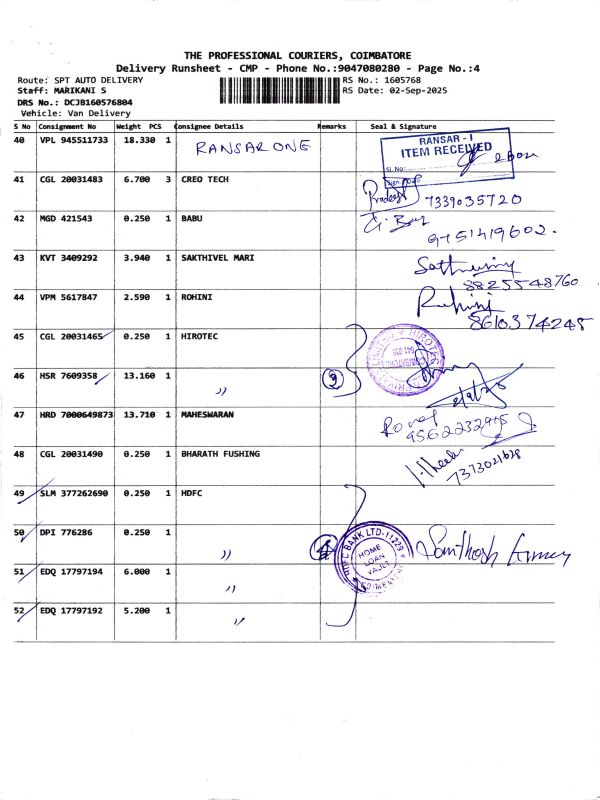 THE PROFESSIONAL COURIERS, COIMBATORE
Delivery Runsheet - CMP - Phone No.:9047080280 - Page No.:4
Route: SPT AUTO DELIVERY
RS No.: 1605768
Staff: MARIKANI S
RS Date: 02-Sep-2025
DRS No.: DCJB160576804
Vehicle: Van Delivery
S No Consignment No Weight PCS Consignee Details Remarks Seal & Signature
40 VPL 945511733 18.330 1 RANSAR ONE
RANSAR - I
ITEM RECEIVED
Sl. No:
41 CGL 20031483 6.700 3 CREO TECH
Pradeep 7339035720
42 MGD 421543 0.250 1 BABU
9751419602.
43 KVT 3409292 3.940 1 SAKTHIVEL MARI
8825548760
44 VPM 5617847 2.590 1 ROHINI
Rohini
8610374245
45 CGL 20031465 0.250 1 HIROTEC
46 HSR 7609358 13.160 1 〃
47 HRD 7000649873 13.710 1 MAHESWARAN
9562232915
48 CGL 20031490 0.250 1 BHARATH FUSHING
7373021628
49 SLM 377262690 0.250 1 HDFC
50 DPI 776286 0.250 1 〃
4
HDFC BANK LTD-11229
HOME
LOAN
VAULT
COIMBATORE
Santhosh Kumar
51 EDQ 17797194 6.000 1 〃
52 EDQ 17797192 5.200 1 〃